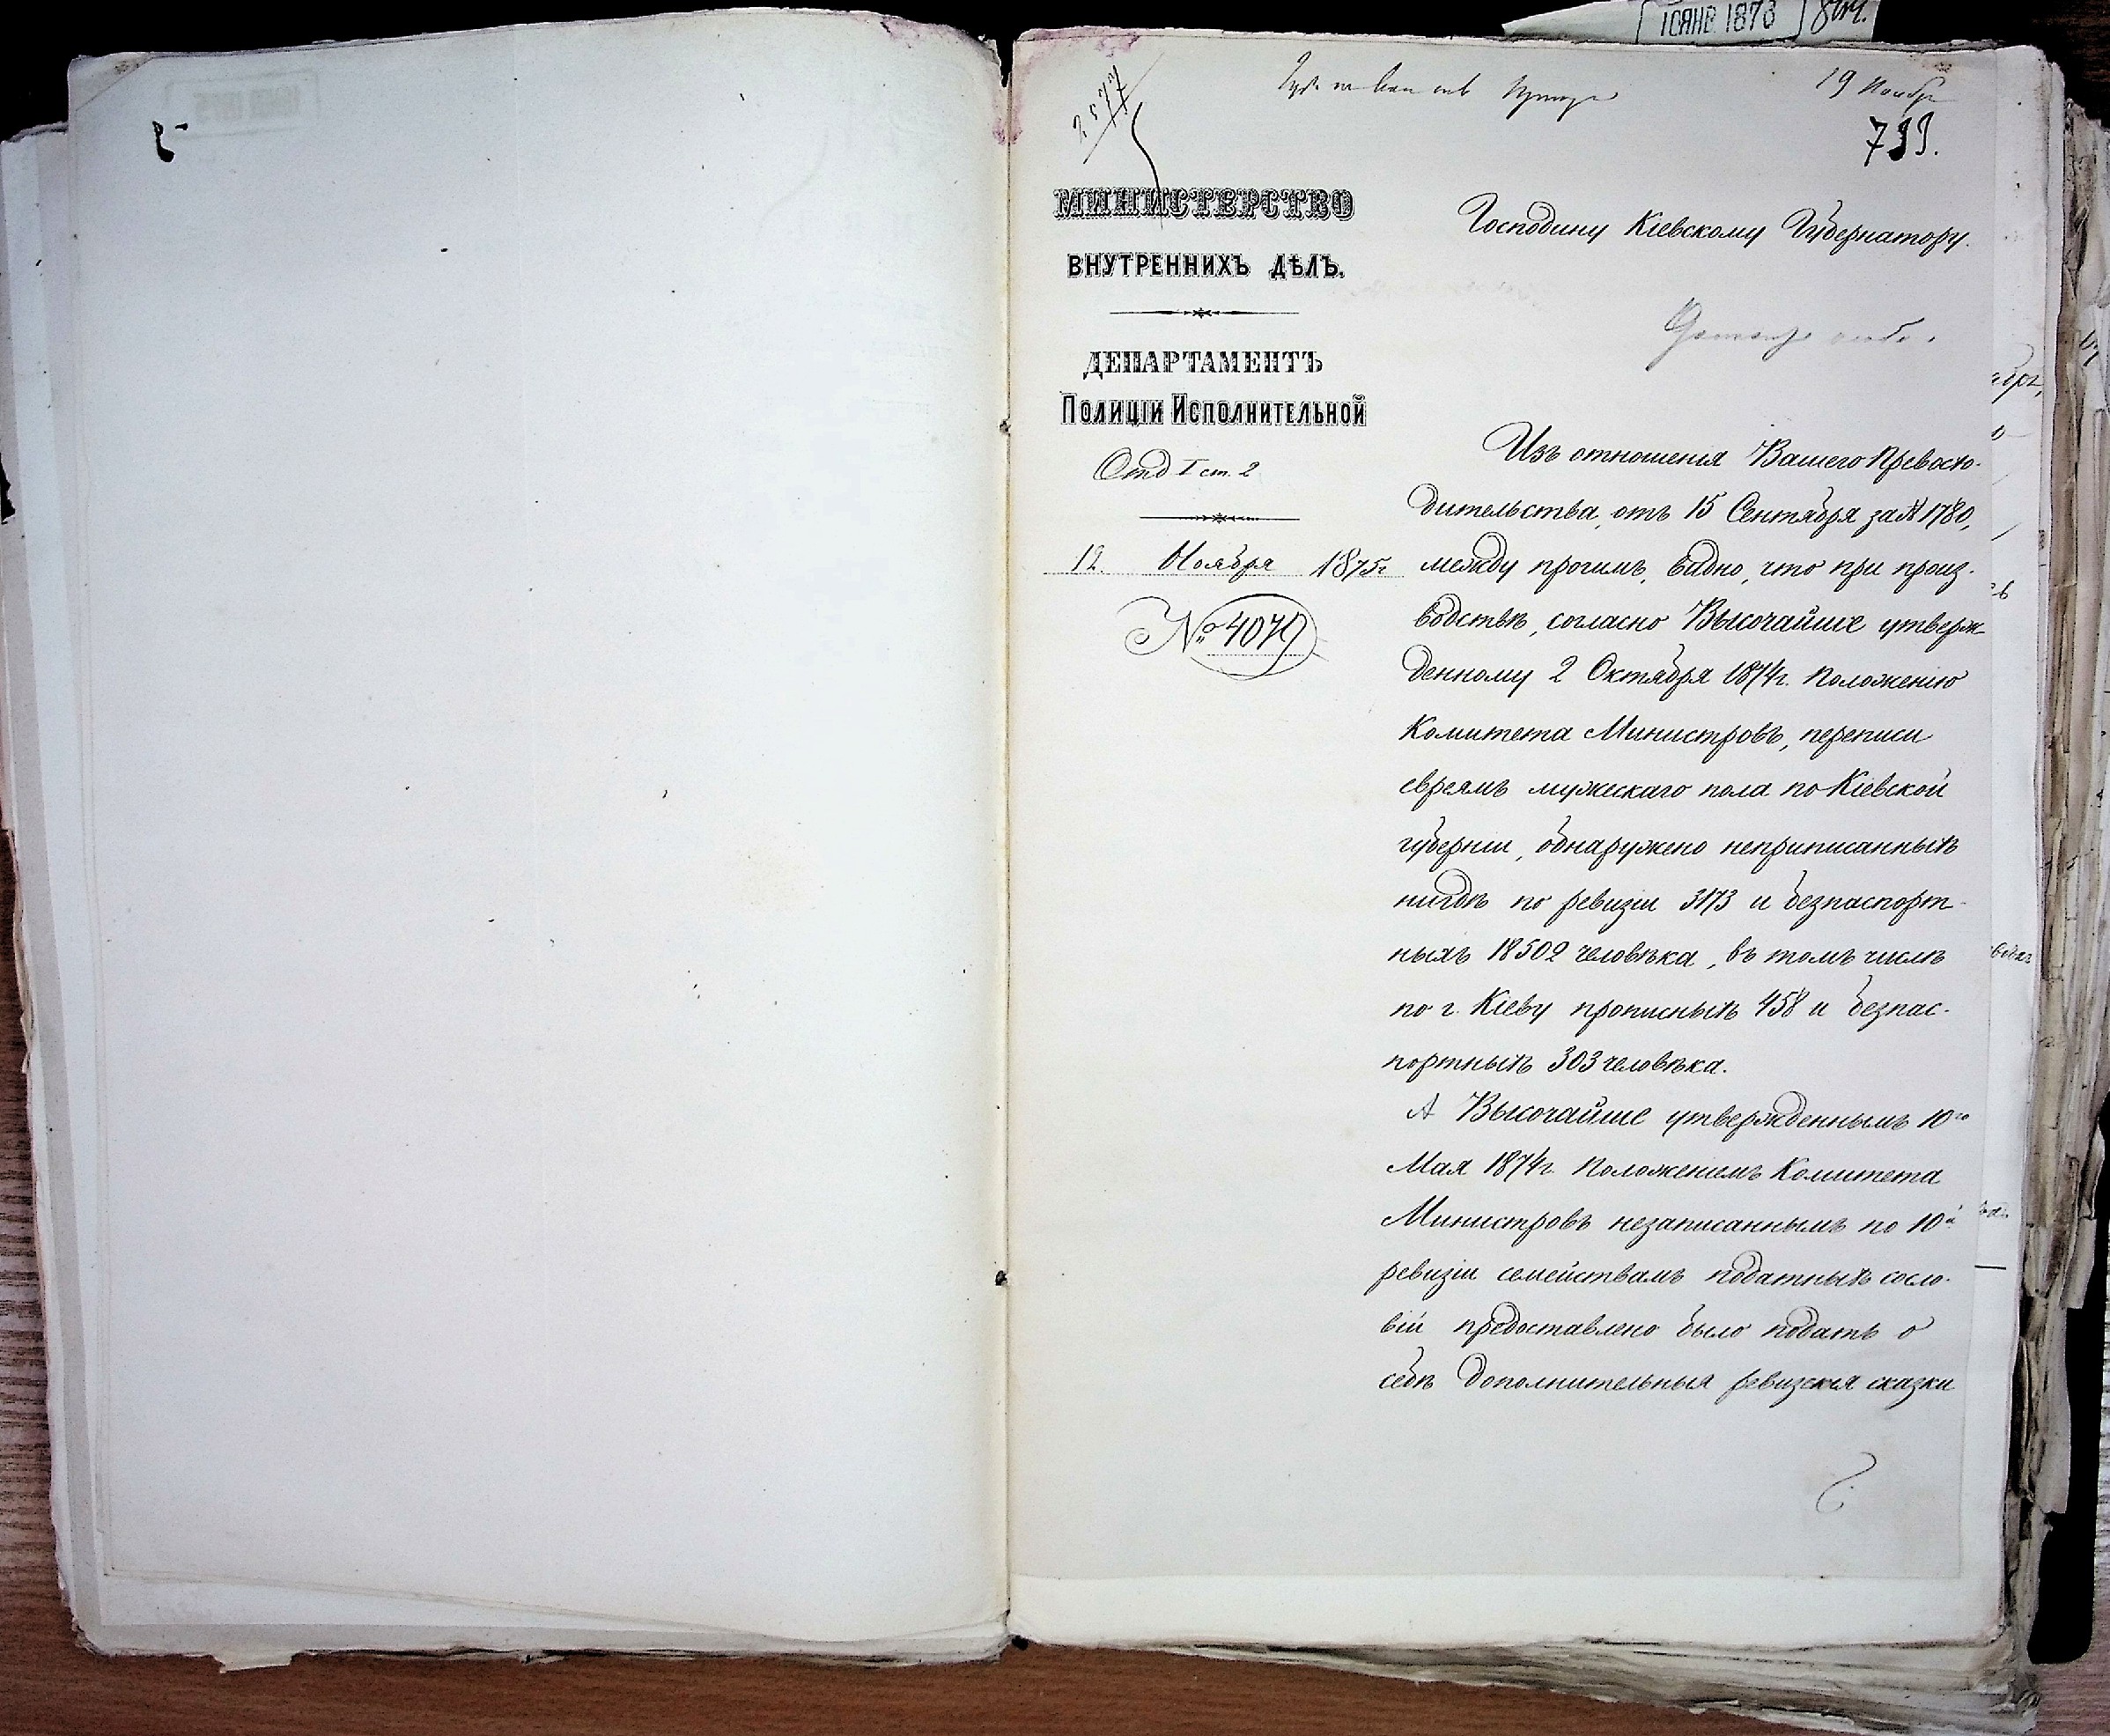 10 ЯНВ 1876
19 Ноября
2577
799.
МИНИСТЕРСТВО
ВНУТРЕННИХЪ ДѢЛЪ.
ДЕПАРТАМЕНТЪ
Полиціи Исполнительной
Отд I ст. 2
12. Ноября 1875г
№ 4079
Господину Кіевскому Губернатору.
Изъ отношенія Вашего Превосхо-
дительства, отъ 15 Сентября за № 1780,
между прочимъ, видно, что при произ-
водствѣ, согласно Высочайше утверж-
денному 2 Октября 1874г. Положенію
Комитета Министровъ, переписи
евреямъ мужескаго пола по Кіевской
губерніи, обнаружено неприписанныхъ
нигдѣ по ревизіи 3173 и безпаспорт-
ныхъ 18502 человѣка, въ томъ числѣ
по г. Кіеву прописныхъ 458 и безпас-
портныхъ 303 человѣка.
А Высочайше утвержденнымъ 10го
Мая 1874г. Положеніемъ Комитета
Министровъ незаписаннымъ по 10й
ревизіи семействамъ податныхъ сосло-
вій предоставлено было подать о
себѣ дополнительныя ревизскія сказки